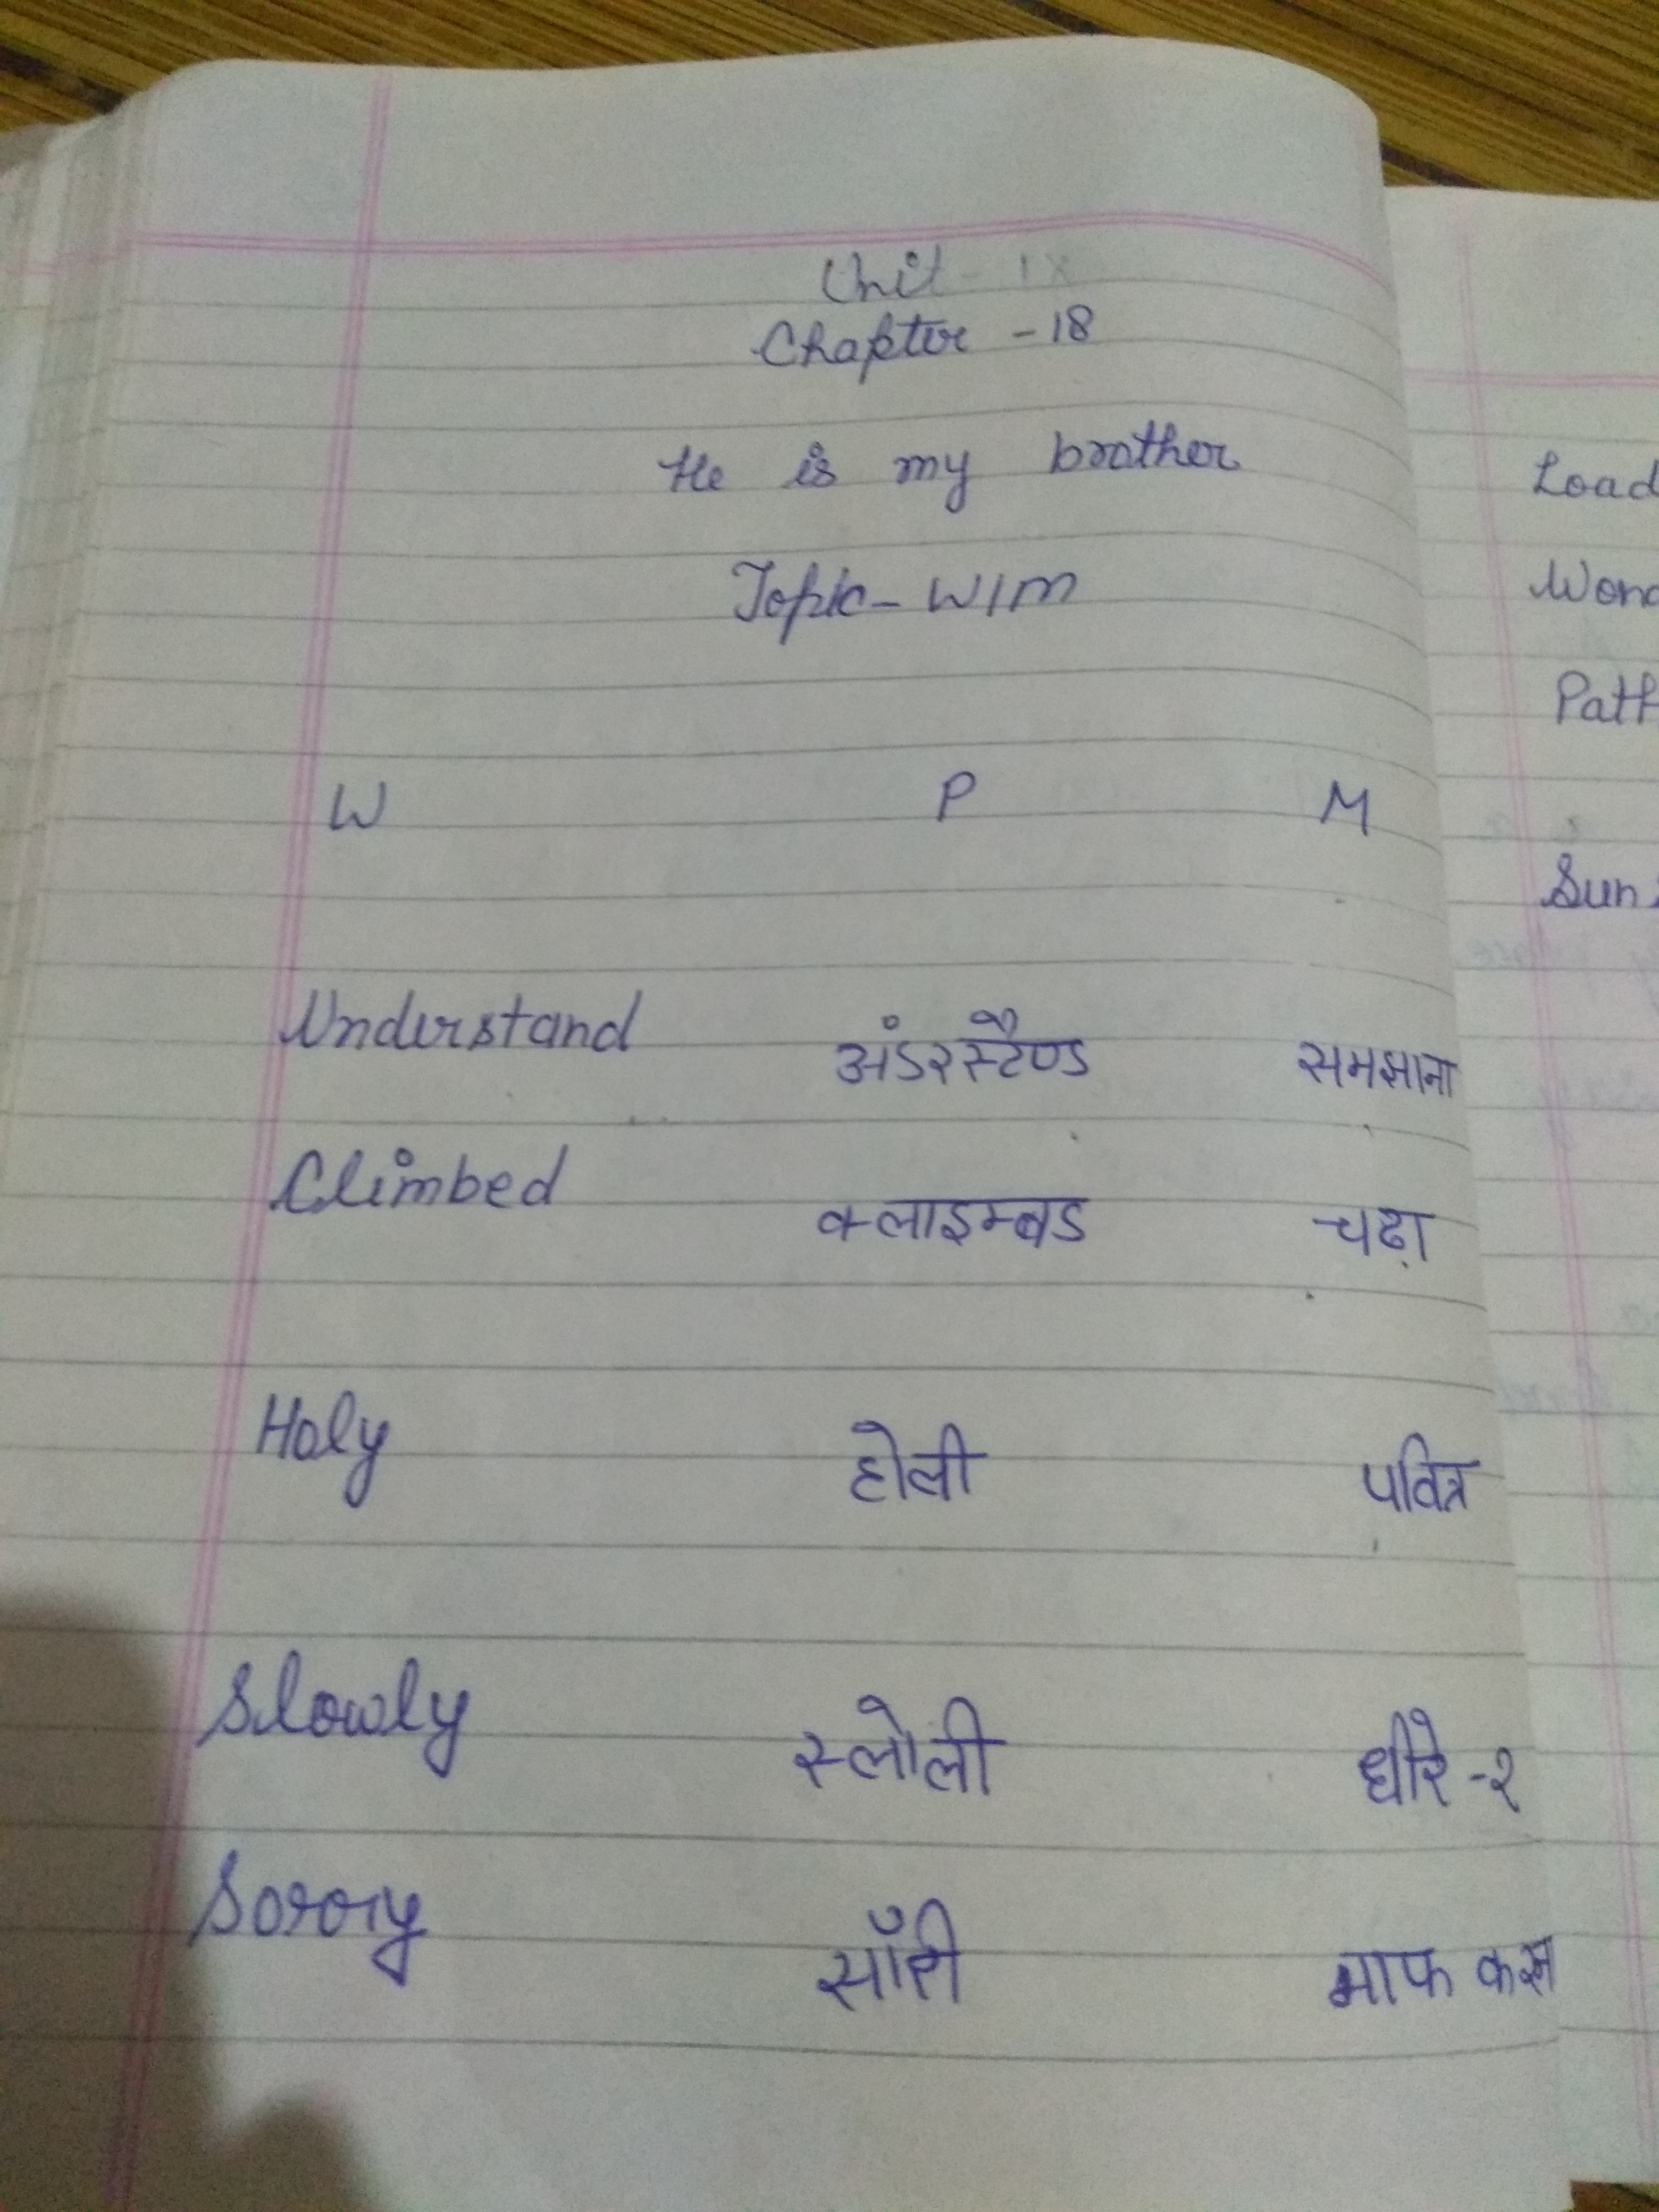 Unit - IX
Chapter - 18
He is my brother
Topic - W/M
W P M
Understand अंडरस्टैण्ड समझाना
Climbed क्लाइम्बड चढ़ा
Holy होली पवित्र
Slowly स्लोली धीरे-२
Sorry सॉरी माफ करना
Load
Path
Sun